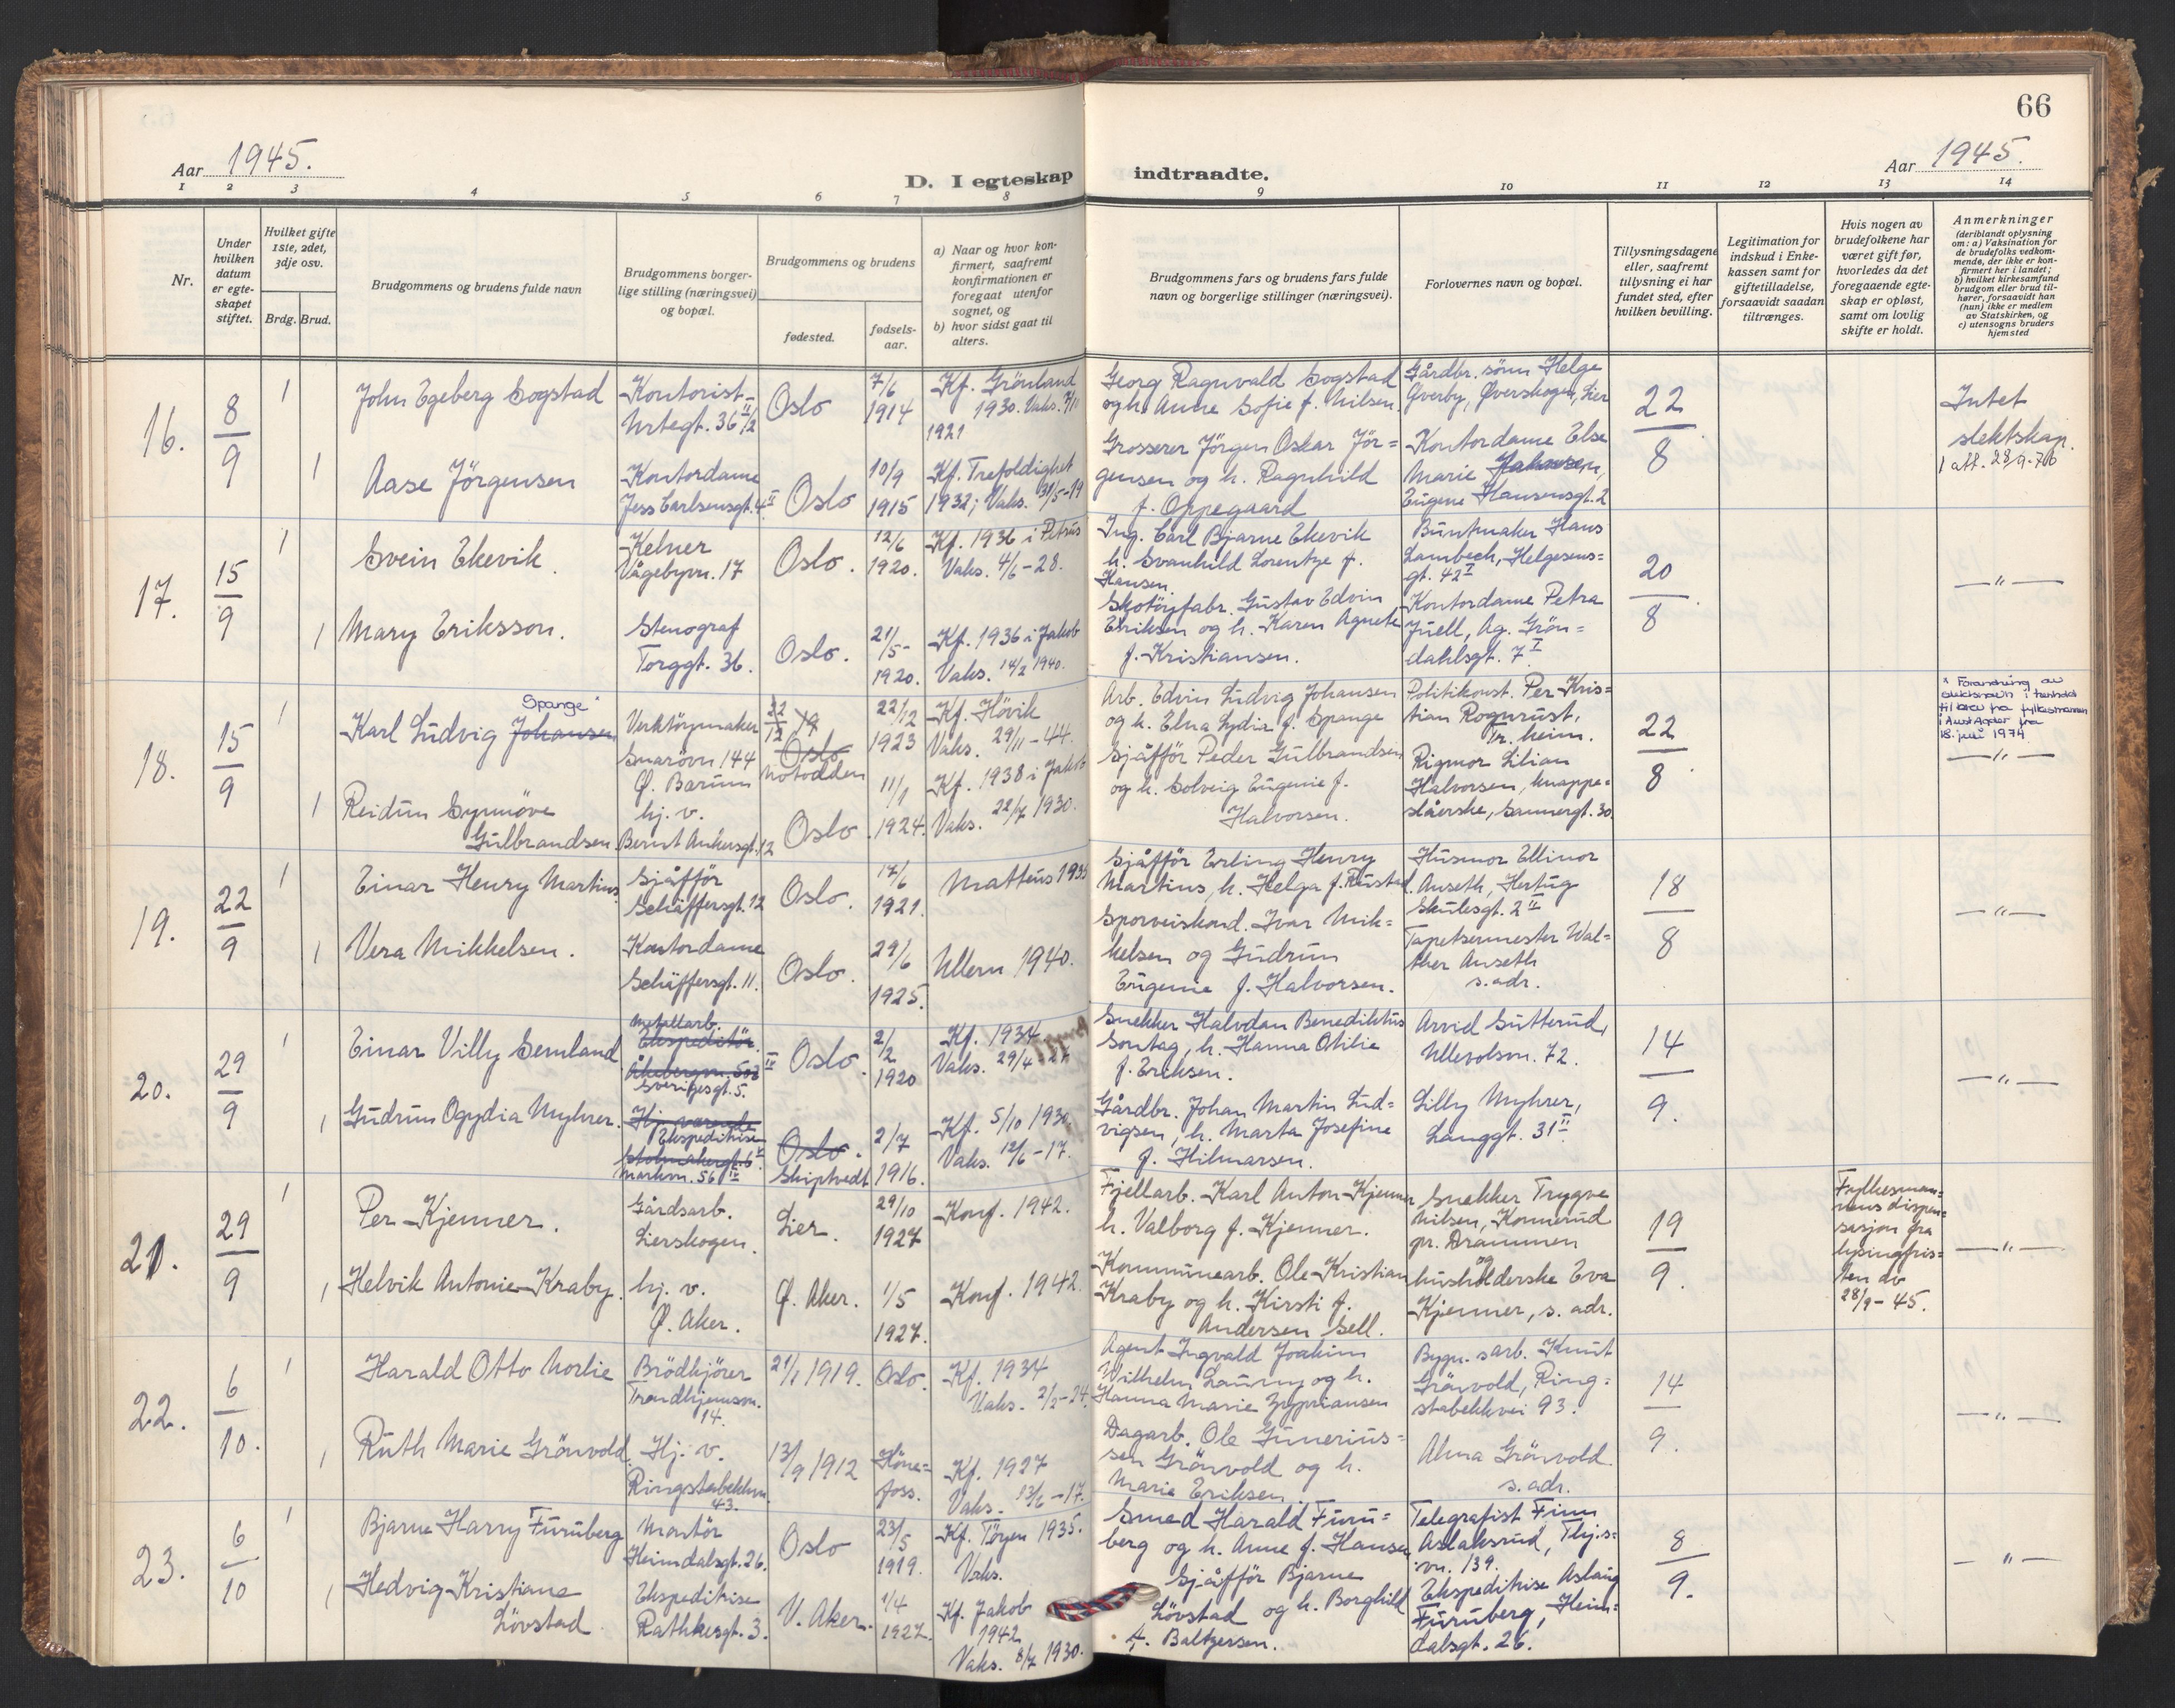 66
Aar 1945.
D. I egteskap indtraadte.
Aar 1945.
1 2 3 4 5 6 7 8 9 10 11 12 13 14
Nr.
Under hvilken datum er egte-skapet stiftet.
Hvilket gifte 1ste, 2det, 3dje osv.
Brdg. Brud.
Brudgommens og brudens fulde navn
Brudgommens borger-lige stilling (næringsvei) og bopæl.
Brudgommens og brudens
fødested.
fødsels-aar.
a) Naar og hvor kon-firmert, saafremt konfirmationen er foregaat utenfor sognet, og
b) hvor sidst gaat til alters.
Brudgommens fars og brudens fars fulde navn og borgerlige stillinger (næringsvei).
Forlovernes navn og bopæl.
Tillysningsdagene eller, saafremt tillysning ei har fundet sted, efter hvilken bevilling.
Legitimation for indskud i Enke-kassen samt for giftetilladelse, forsaavidt saadan tiltrænges.
Hvis nogen av brudefolkene har været gift før, hvorledes da det foregaaende egte-skap er opløst, samt om lovlig skifte er holdt.
Anmerkninger
(deriblandt oplysning om: a) Vaksination for de brudefolks vedkom-mende, der ikke er kon-firmert her i landet; b) hvilket kirkesamfund brudgom eller brud til-hører, forsaavidt han (hun) ikke er medlem av Statskirken, og c) utensogns bruders hjemsted
16.
8/9
1
John Egeberg Sogstad
Kontorist
Urtegt. 36 II/2
Oslo
7/6 1914
Kf. Grønland
1930. Vaks.
1921
Georg Ragnvald Sogstad
og h. Anne Sofie f. Nilsen.
Gårdbr. sønn Helge
Øverby, Øverskogen, Lier
22/8
Intet
slektskap.
1 att. 28/9-76
1
Aase Jörgensen
Kontordame
Jess Carlsensgt. 4 II
Oslo
10/9 1915
Kf. Trefoldighet
1932; Vaks. 31/5-19
Grosserer Jörgen Oskar Jör=
gensen og h. Ragnhild
f. Oppegaard
Kontordame Else
Marie
Eugene Hansensgt. 2
17.
15/9
1
Svein Ekevik.
Kelner
Vågebyvn. 17
Oslo.
12/6 1920.
Kf. 1936 i Petrus
Vaks. 4/6-28.
Ing. Carl Bjarne Ekevik
h. Svanhild Lorentze f.
Hansen.
Buntmaker Hans
Lambech, Helgesens=
gt. 42 I
20/8
— " —
1
Mary Eriksson.
Stenograf
Torggt. 36.
Oslo.
21/5- 1920.
Kf. 1936 i Jakob
Vaks. 14/2 1940.
Skotöyfabr. Gustav Edvin
Eriksen og h. Karen Agnete
f. Kristiansen.
Kontordame Petra
Juell, Ag. Grön=
dahlsgt. 7 I
18.
15/9
1
Spange *
Karl Ludvig Johansen
Verktöymaker
Snarövn. 144
Ø. Bærum
Oslo
Notodden
22/12 1923
Kf. Hövik
Vaks. 29/11-44.
Arb. Edvin Ludvig Johansen
og h. Elna Lydia f. Spange
Politikonst. Per Kris=
tian Rognrust,
Tr. heim.
22/8
* Forandring av
slektsnavn i henhold
til brev fra fylkesmannen
i Aust Agder fra
18. juli 1974
— " —
1
Reidun Synnöve
Gulbrandsen.
hj. v.
Bernt Ankersgt. 12
Oslo
11/1 1924.
Kf. 1938 i Jakob
Vaks. 22/7 1930.
Sjåfför Peder Gulbrandsen
og h. Solveig Eugenie f.
Halvorsen.
Rigmor Lilian
Halvorsen, knappe=
slåerske, Sannergt. 30
19.
22/9
1
Einar Henry Martins
Sjåfför
Schäffersgt. 12
Oslo.
17/6 1921.
Matteus 1935
Sjåfför Erling Henry
Martins, h. Helga f. Rustad.
Husmor Ellinor
Anseth, Hertug
Skulesgt. 2 II
18/8
— " —
1
Vera Mikkelsen.
Kontordame
Schäffersgt. 11.
Oslo.
29/6 1925.
Ullern 1940.
Sporveiskond. Ivar Mik=
kelsen og Gudrun
Eugenie f. Halvorsen.
Tapetsermester Wal=
ther Anseth
s. adr.
20.
29/9
1
Einar Villy Semland
Metallarb.
Ekspeditör.
Åkebergvn. 50 II
Sverigesgt. 5.
Oslo.
2/2 1920
Kf. 1934
Vaks. 29/4-27
Snekker Halvdan Benediktus
Sontag, h. Hanna Otilie
f. Eriksen.
Arvid Gutterud,
Ullevolsvn. 72.
14/9.
— " —
1
Gudrun Ogydia Myhrer.
Hj. værende
Ekspeditrise
Stolmakergt. 6 II
Markvn. 56 IV
Oslo.
Skiptvedt
2/7 1916.
Kf. 5/10 1930.
Vaks. 12/6-17.
Gårdbr. Johan Martin Lud=
vigsen, h. Marta Josefine
f. Hilmarsen.
Lilly Myhrer,
Langgt. 31 II
21.
29/9
1
Per Kjenner.
Gårdsarb.
Lierskogen.
Lier.
29/10 1927
Konf. 1942.
Fjellarb. Karl Anton Kjenner
h. Valborg f. Kjenner.
Snekker Trygve
Nilsen, Konnerud
pr. Drammen
19/9.
Fylkesman=
nens dispen=
sasjon fra
lysingfris=
ten av
28/9-45.
— " —
1
Helvik Antonie Kraby.
hj. v.
Ø. Aker.
Ø. Aker.
1/5 1927.
Konf. 1942.
Kommunearb. Ole Kristian
Kraby og h. Kirsti f.
Andersen Sell.
og
husholderske Eva
Kjenner, s. adr.
22.
6/10.
1
Harald Otto Norlie
Brödkjörer
Trondhjemsvn.
14.
21/1 1919.
Oslo.
Kf. 1934
Vaks. 2/2-24.
Agent Ingvald Joakim
Wilhelm Laumy og h.
Hanna Marie Zypriansen
Bygn.sarb. Knut
Grönvold, Ring=
stabekkvei 93.
14/9.
— " —
1
Ruth Marie Grönvold.
Hj. v.
Ringstabekkvn.
43.
13/9 1912
Höne=
foss.
Kf. 1927
Vaks. 13/6-17.
Dagarb. Ole Gunerius=
sen Grönvold og h.
Marie Eriksen.
Alma Grönvold.
s. adr.
23.
6/10
1
Bjarne Harry Furuberg
Montör
Heimdalsgt. 26.
Oslo
23/5 1919.
Kf. Töyen 1935.
Vaks.
Smed Harald Furu=
berg og h. Anne f. Hansen
Telegrafist Finn
Aslaksrud, Thj.s=
vn. 139.
8/9.
— " —
1
Hedvig Kristiane
Lövstad
Ekspeditrise
Rathkesgt. 3.
V. Aker.
1/4 1927.
Kf. Jakob
1942
Vaks. 8/7 1930.
Sjåfför Bjarne
Lövstad og h. Borghild
f. Baltzersen.
Ekspeditrise Aslaug
Furuberg, Heim=
dalsgt. 26.